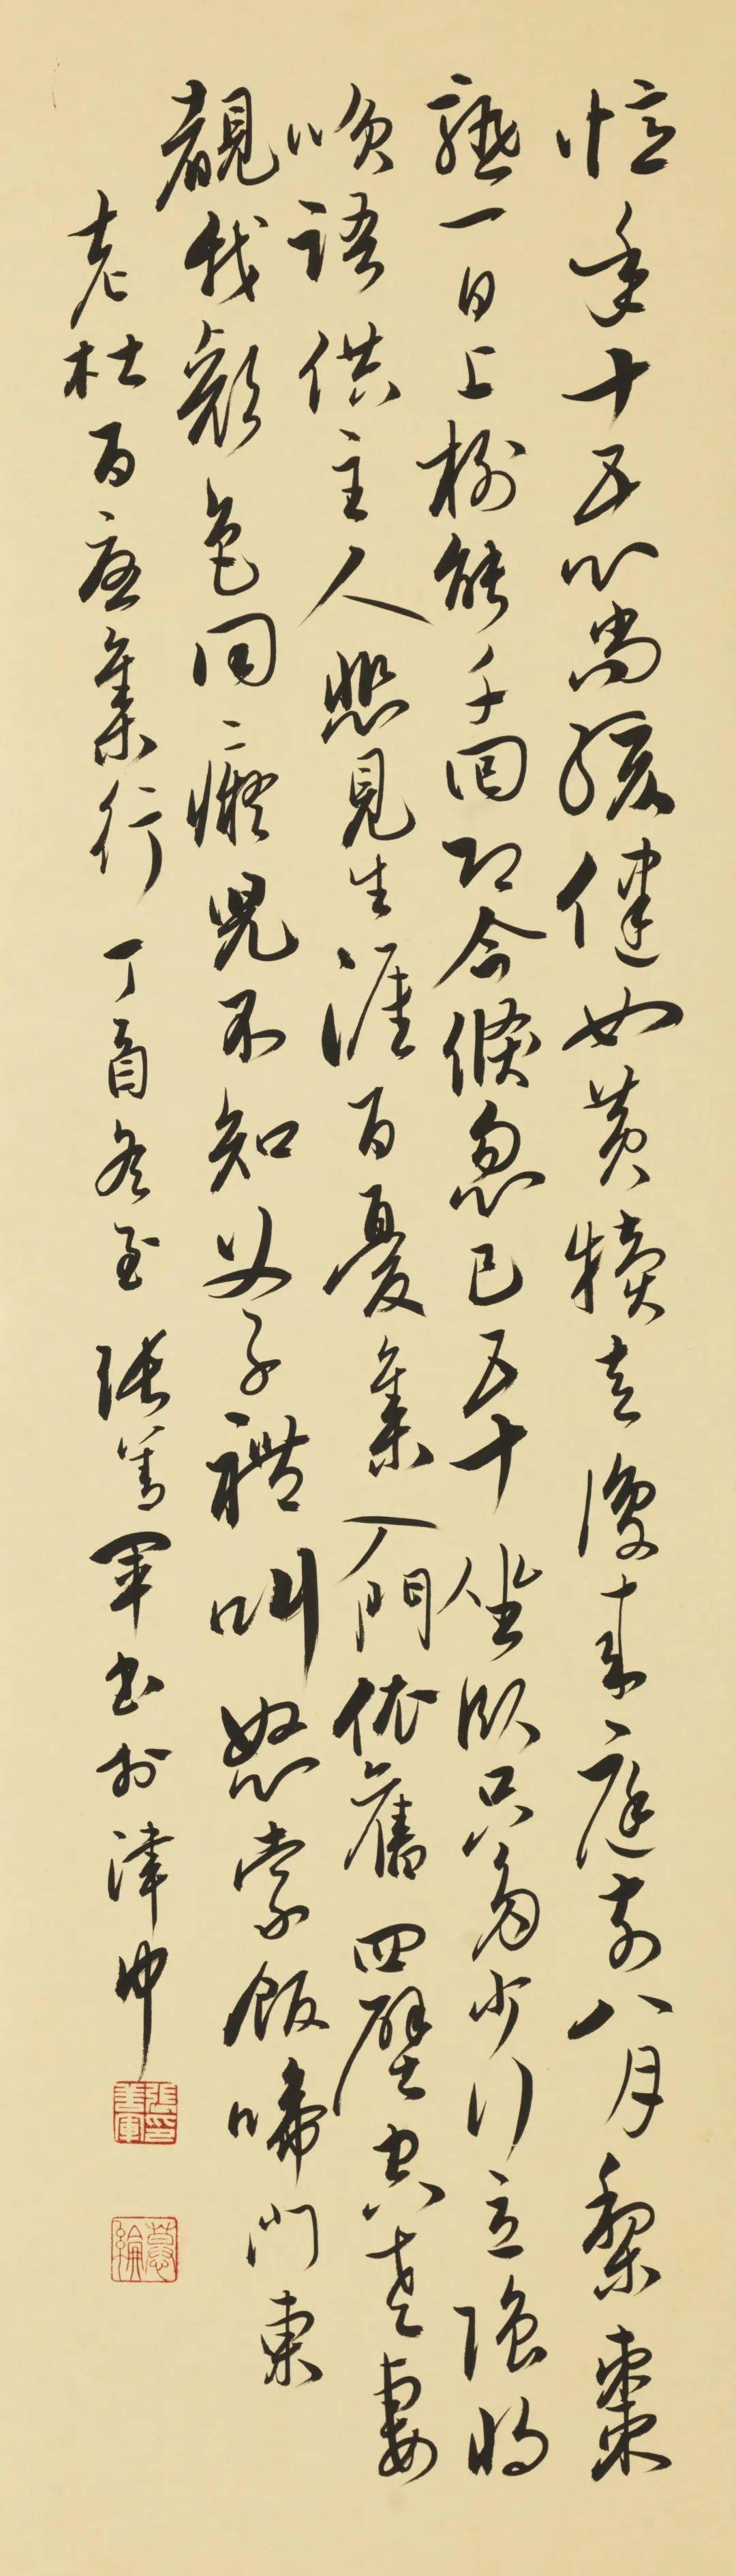 憶年十五心尚孩健如黃犢走復來庭前八月梨棗
熟一日上樹能千回即今倏忽已五十坐臥只多少行立強將
笑語供主人悲見生涯百憂集入門依舊四壁空老妻
覩我顏色同〻癡兒不知父子禮叫怒索飯啼門東
老杜百憂集行丁酉冬至張善軍書於津中
張善軍印